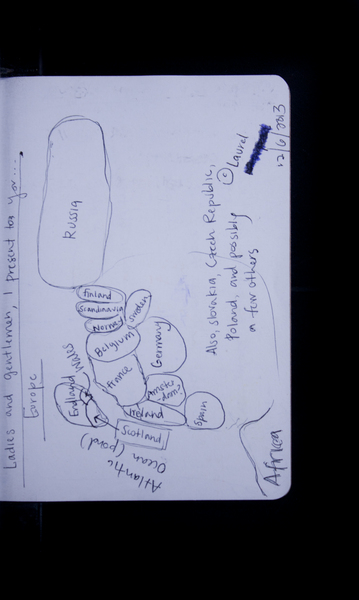 Ladies and gentlemen, I present to you...
Europe
Russia
Finland
Scandinavia
Norway
Sweden
Belgium
Germany
France
Amsterdam?
Ireland
Spain
England
Wales
Scotland
Atlantic
Ocean (pond)
Africa
Also, Slovakia, Czech Republic,
Poland, and possibly
a few others
© Laurel
12/6/2013